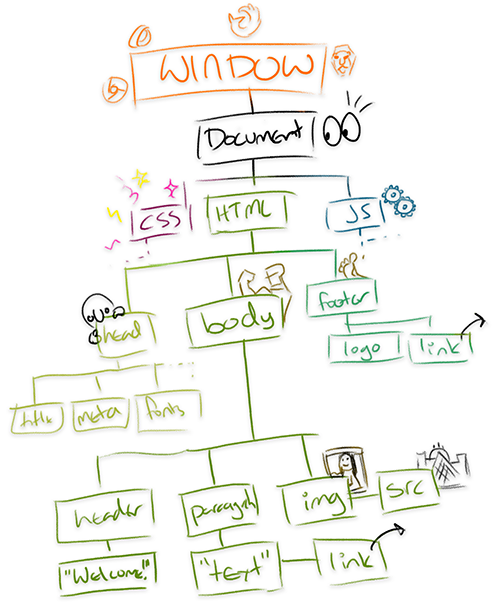 WINDOW
Document
CSS
HTML
JS
head
body
footer
logo
link
title
meta
fonts
header
paragraph
img
src
"Welcome!"
"text"
link